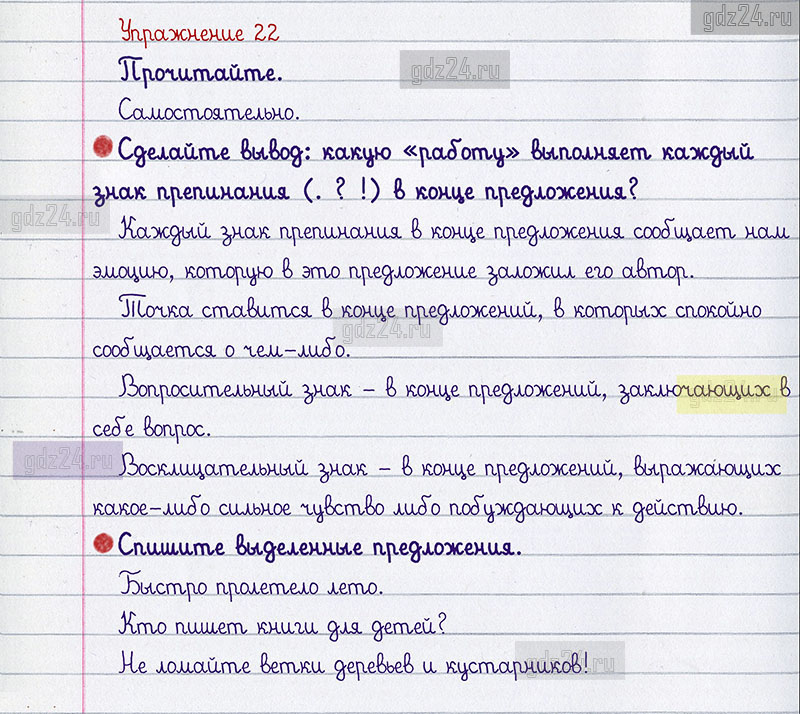 gdz24.ru
Упражнение 22
Прочитайте.
gdz24.ru
Самостоятельно.
Сделайте вывод: какую «работу» выполняет каждый
знак препинания (. ? !) в конце предложения?
gdz24.ru
Каждый знак препинания в конце предложения сообщает нам
эмоцию, которую в это предложение заложил его автор.
Точка ставится в конце предложений, в которых спокойно
gdz24.ru
сообщается о чем-либо.
Вопросительный знак – в конце предложений, заключающих в
gdz24.ru
себе вопрос.
gdz24.ru
Восклицательный знак – в конце предложений, выражающих
какое-либо сильное чувство либо побуждающих к действию.
Спишите выделенные предложения.
Быстро пролетело лето.
Кто пишет книги для детей?
Не ломайте ветки деревьев и кустарников!
gdz24.ru